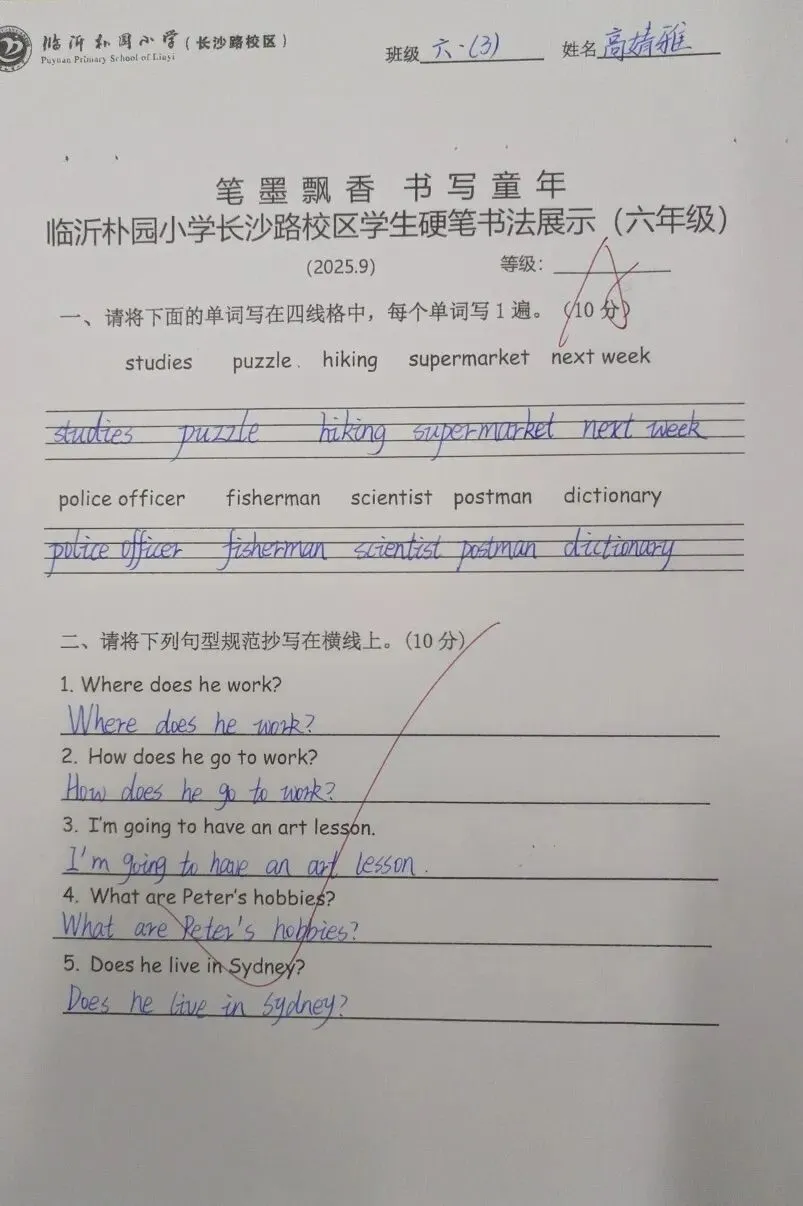 临沂朴园小学(长沙路校区)
Puyuan Primary School of Linyi
班级 六·(3) 姓名 高婧雅
笔墨飘香 书写童年
临沂朴园小学长沙路校区学生硬笔书法展示（六年级）
(2025.9) 等级: A
一、请将下面的单词写在四线格中，每个单词写1遍。（10分）
studies puzzle. hiking supermarket next week
studies puzzle hiking supermarket next week
police officer fisherman scientist postman dictionary
police officer fisherman scientist postman dictionary
二、请将下列句型规范抄写在横线上。(10分)
1. Where does he work?
Where does he work?
2. How does he go to work?
How does he go to work?
3. I'm going to have an art lesson.
I'm going to have an art lesson.
4. What are Peter's hobbies?
What are Peter's hobbies?
5. Does he live in Sydney?
Does he live in Sydney?